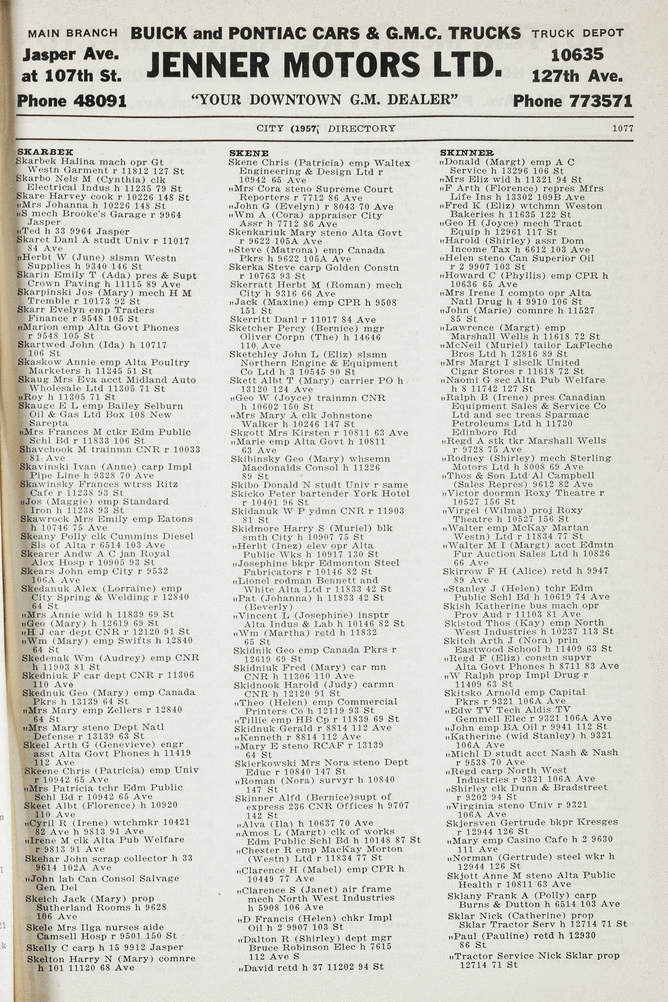 MAIN BRANCH BUICK and PONTIAC CARS & G.M.C. TRUCKS TRUCK DEPOT
Jasper Ave. JENNER MOTORS LTD. 10635
at 107th St. 127th Ave.
Phone 48091 "YOUR DOWNTOWN G.M. DEALER" Phone 773571
CITY (1957) DIRECTORY 1077
SKARBEK
Skarbek Halina mach opr Gt
Westn Garment r 11812 127 St
Skarbo Nels M (Cynthia) clk
Electrical Indus h 11235 79 St
Skare Harvey cook r 10226 148 St
„Mrs Johanna h 10226 148 St
„S mech Brooke's Garage r 9964
Jasper
„Ted h 33 9964 Jasper
Skaret Danl A studt Univ r 11017
84 Ave
„Herbt W (June) slsmn Westn
Supplies h 9340 146 St
Skarin Emily T (Ada) pres & Supt
Crown Paving h 11115 89 Ave
Skarpinski Jos (Mary) mech H M
Tremble r 10173 92 St
Skarr Evelyn emp Traders
Finance r 9548 105 St
„Marion emp Alta Govt Phones
r 9548 105 St
Skartwed John (Ida) h 10717
106 St
Skaskow Annie emp Alta Poultry
Marketers h 11245 51 St
Skaug Mrs Eva acct Midland Auto
Wholesale Ltd 11305 71 St
„Roy h 11305 71 St
Skauge E L emp Bailey Selburn
Oil & Gas Ltd Box 108 New
Sarepta
„Mrs Frances M ctkr Edm Public
Schl Bd r 11833 106 St
Shavchook M trainmn CNR r 10033
81 Ave
Skavinski Ivan (Anne) carp Impl
Pipe Line h 9328 70 Ave
Skawinsky Frances wtrss Ritz
Cafe r 11238 93 St
„Jos (Maggie) emp Standard
Iron h 11238 93 St
Skawrock Mrs Emily emp Eatons
h 10746 75 Ave
Skeany Polly clk Cummins Diesel
Sls of Alta r 6514 103 Ave
Skearer Andw A C jan Royal
Alex Hosp r 10905 93 St
Skears John emp City r 9532
106A Ave
Skedanuk Alex (Lorraine) emp
City Spring & Welding r 12840
64 St
„Mrs Annie wid h 11839 69 St
„Geo (Mary) h 12619 69 St
„H J car dept CNR r 12120 91 St
„Wm (Mary) emp Swifts h 12840
64 St
Skedenak Wm (Audrey) emp CNR
h 11903 81 St
Skedniuk F car dept CNR r 11306
110 Ave
Skednuk Geo (Mary) emp Canada
Pkrs h 13139 64 St
„Mrs Mary emp Zellers r 12840
64 St
„Mrs Mary steno Dept Natl
Defense r 13139 63 St
Skeel Arth G (Genevieve) engr
asst Alta Govt Phones h 11419
112 Ave
Skeene Chris (Patricia) emp Univ
r 10942 65 Ave
„Mrs Patricia tchr Edm Public
Schl Bd r 10942 65 Ave
Skeet Albt (Florence) h 10920
110 Ave
„Cyril R (Irene) wtchmkr 10421
82 Ave h 9813 91 Ave
„Irene M clk Alta Pub Welfare
r 9813 91 Ave
Skehar John scrap collector h 33
9614 102A Ave
„John lab Can Consol Salvage
Gen Del
Skeich Jack (Mary) prop
Sutherland Rooms h 9628
106 Ave
Skele Mrs Ilga nurses aide
Camsell Hosp r 9501 150 St
Skelly C carp h 15 9912 Jasper
Skelton Harry N (Mary) comnre
h 101 11120 68 Ave
SKENE
Skene Chris (Patricia) emp Waltex
Engineering & Design Ltd r
10942 65 Ave
„Mrs Cora steno Supreme Court
Reporters r 7712 86 Ave
„John G (Evelyn) r 8043 70 Ave
„Wm A (Cora) appraiser City
Assr h 7712 86 Ave
Skenkariuk Mary steno Alta Govt
r 9622 105A Ave
„Steve (Matrona) emp Canada
Pkrs h 9622 105A Ave
Skerka Steve carp Golden Constn
r 10763 93 St
Skerratt Herbt M (Roman) mech
City h 9316 66 Ave
„Jack (Maxine) emp CPR h 9508
151 St
Skerritt Danl r 11017 84 Ave
Sketcher Percy (Bernice) mgr
Oliver Corpn (The) h 14646
110 Ave
Sketchley John L (Eliz) slsmn
Northern Engine & Equipment
Co Ltd h 3 10545 90 St
Skett Albt T (Mary) carrier PO h
13120 124 Ave
„Geo W (Joyce) trainmn CNR
h 10602 150 St
„Mrs Mary A clk Johnstone
Walker h 10246 147 St
Skgott Mrs Kirsten r 10811 63 Ave
„Marie emp Alta Govt h 10811
63 Ave
Skibinsky Geo (Mary) whsemn
Macdonalds Consol h 11226
89 St
Skibo Donald N studt Univ r same
Skicko Peter bartender York Hotel
r 10401 96 St
Skidanuk W P ydmn CNR r 11903
81 St
Skidmore Harry S (Muriel) blk
smth City h 10907 75 St
„Herbt (Inez) elev opr Alta
Public Wks h 10917 130 St
„Josephine bkpr Edmonton Steel
Fabricators r 10146 82 St
„Lionel rodman Bennett and
White Alta Ltd r 11833 42 St
„Pat (Johanna) h 11833 42 St
(Beverly)
„Vincent L (Josephine) insptr
Alta Indus & Lab h 10146 82 St
„Wm (Martha) retd h 11832
65 St
Skidnik Geo emp Canada Pkrs r
12619 69 St
Skidniuk Fred (Mary) car mn
CNR h 11306 110 Ave
Skidnook Harold (Judy) carmn
CNR h 12120 91 St
„Theo (Helen) emp Commercial
Printers Co h 12119 93 St
„Tillie emp HB Cp r 11839 69 St
Skidnuk Gerald r 8814 112 Ave
„Kenneth r 8814 112 Ave
„Mary E steno RCAF r 13139
64 St
Skierkowski Mrs Nora steno Dept
Educ r 10840 147 St
„Roman (Nora) survyr h 10840
147 St
Skinner Alfd (Bernice)supt of
express 236 CNR Offices h 9707
142 St
„Alva (Ila) h 10637 70 Ave
„Amos L (Margt) clk of works
Edm Public Schl Bd h 10148 87 St
„Chester R emp MacKay Morton
(Westn) Ltd r 11834 77 St
„Clarence H (Mabel) emp CPR h
10449 77 Ave
„Clarence S (Janet) air frame
mech North West Industries
h 5908 106 Ave
„D Francis (Helen) chkr Impl
Oil h 2 9907 103 St
„Dalton R (Shirley) dept mgr
Bruce Robinson Elec h 7615
112 Ave S
„David retd h 37 11202 94 St
SKINNER
„Donald (Margt) emp A C
Service h 13296 106 St
„Mrs Eliz wid h 11321 94 St
„F Arth (Florence) repres Mfrs
Life Ins h 13302 109B Ave
„Fred K (Eliz) wtchmn Weston
Bakeries h 11635 122 St
„Geo H (Joyce) mech Tract
Equip h 12961 117 St
„Harold (Shirley) assr Dom
Income Tax h 6612 103 Ave
„Helen steno Can Superior Oil
r 2 9907 103 St
„Howard C (Phyllis) emp CPR h
10636 65 Ave
„Mrs Irene I compto opr Alta
Natl Drug h 4 9910 106 St
„John (Marie) comnre h 11527
85 St
„Lawrence (Margt) emp
Marshall Wells h 11618 72 St
„McNeil (Muriel) tailor LaFleche
Bros Ltd h 12816 89 St
„Mrs Margt I slsclk United
Cigar Stores r 11618 72 St
„Naomi G sec Alta Pub Welfare
h 8 11742 127 St
„Ralph B (Irene) pres Canadian
Equipment Sales & Service Co
Ltd and sec treas Sparmac
Petroleums Ltd h 11720
Edinboro Rd
„Regd A stk tkr Marshall Wells
r 9728 75 Ave
„Rodney (Shirley) mech Sterling
Motors Ltd h 8008 69 Ave
„Thos & Son Ltd Al Campbell
(Sales Repres) 9612 82 Ave
„Victor doormn Roxy Theatre r
10527 156 St
„Virgel (Wilma) proj Roxy
Theatre h 10527 156 St
„Walter emp McKay Martan
Westn) Ltd r 11834 77 St
„Walter M I (Margt) acct Edmtn
Fur Auction Sales Ltd h 10826
66 Ave
Skirrow F H (Alice) retd h 9947
89 Ave
„Stanley J (Helen) tchr Edm
Public Schl Bd h 10619 74 Ave
Skish Katherine bus mach opr
Prov Aud r 11103 81 Ave
Skistod Thos (Kay) emp North
West Industries h 10237 113 St
Skitch Arth J (Nora) prin
Eastwood School h 11409 63 St
„Regd F (Eliz) constn supvr
Alta Govt Phones h 8711 83 Ave
„W Ralph prop Impl Drug r
11409 63 St
Skitsko Arnold emp Capital
Pkrs r 9321 106A Ave
„Edw TV Tech Aldis TV
Gemmell Elec r 9321 106A Ave
„John emp BA Oil r 9941 112 St
„Katherine (wid Stanley) h 9321
106A Ave
„Michl D studt acct Nash & Nash
r 9538 70 Ave
„Regd carp North West
Industries r 9321 106A Ave
„Shirley clk Dunn & Bradstreet
r 9202 94 St
„Virginia steno Univ r 9321
106A Ave
Skjersven Gertrude bkpr Kresges
r 12944 126 St
„Mary emp Casino Cafe h 2 9630
111 Ave
„Norman (Gertrude) steel wkr h
12944 126 St
Skjott Anne M steno Alta Public
Health r 10811 63 Ave
Sklany Frank A (Polly) carp
Burns & Dutton h 6514 103 Ave
Sklar Nick (Catherine) prop
Sklar Tractor Serv h 12714 71 St
„Paul (Pauline) retd h 12930
86 St
„Tractor Service Nick Sklar prop
12714 71 St